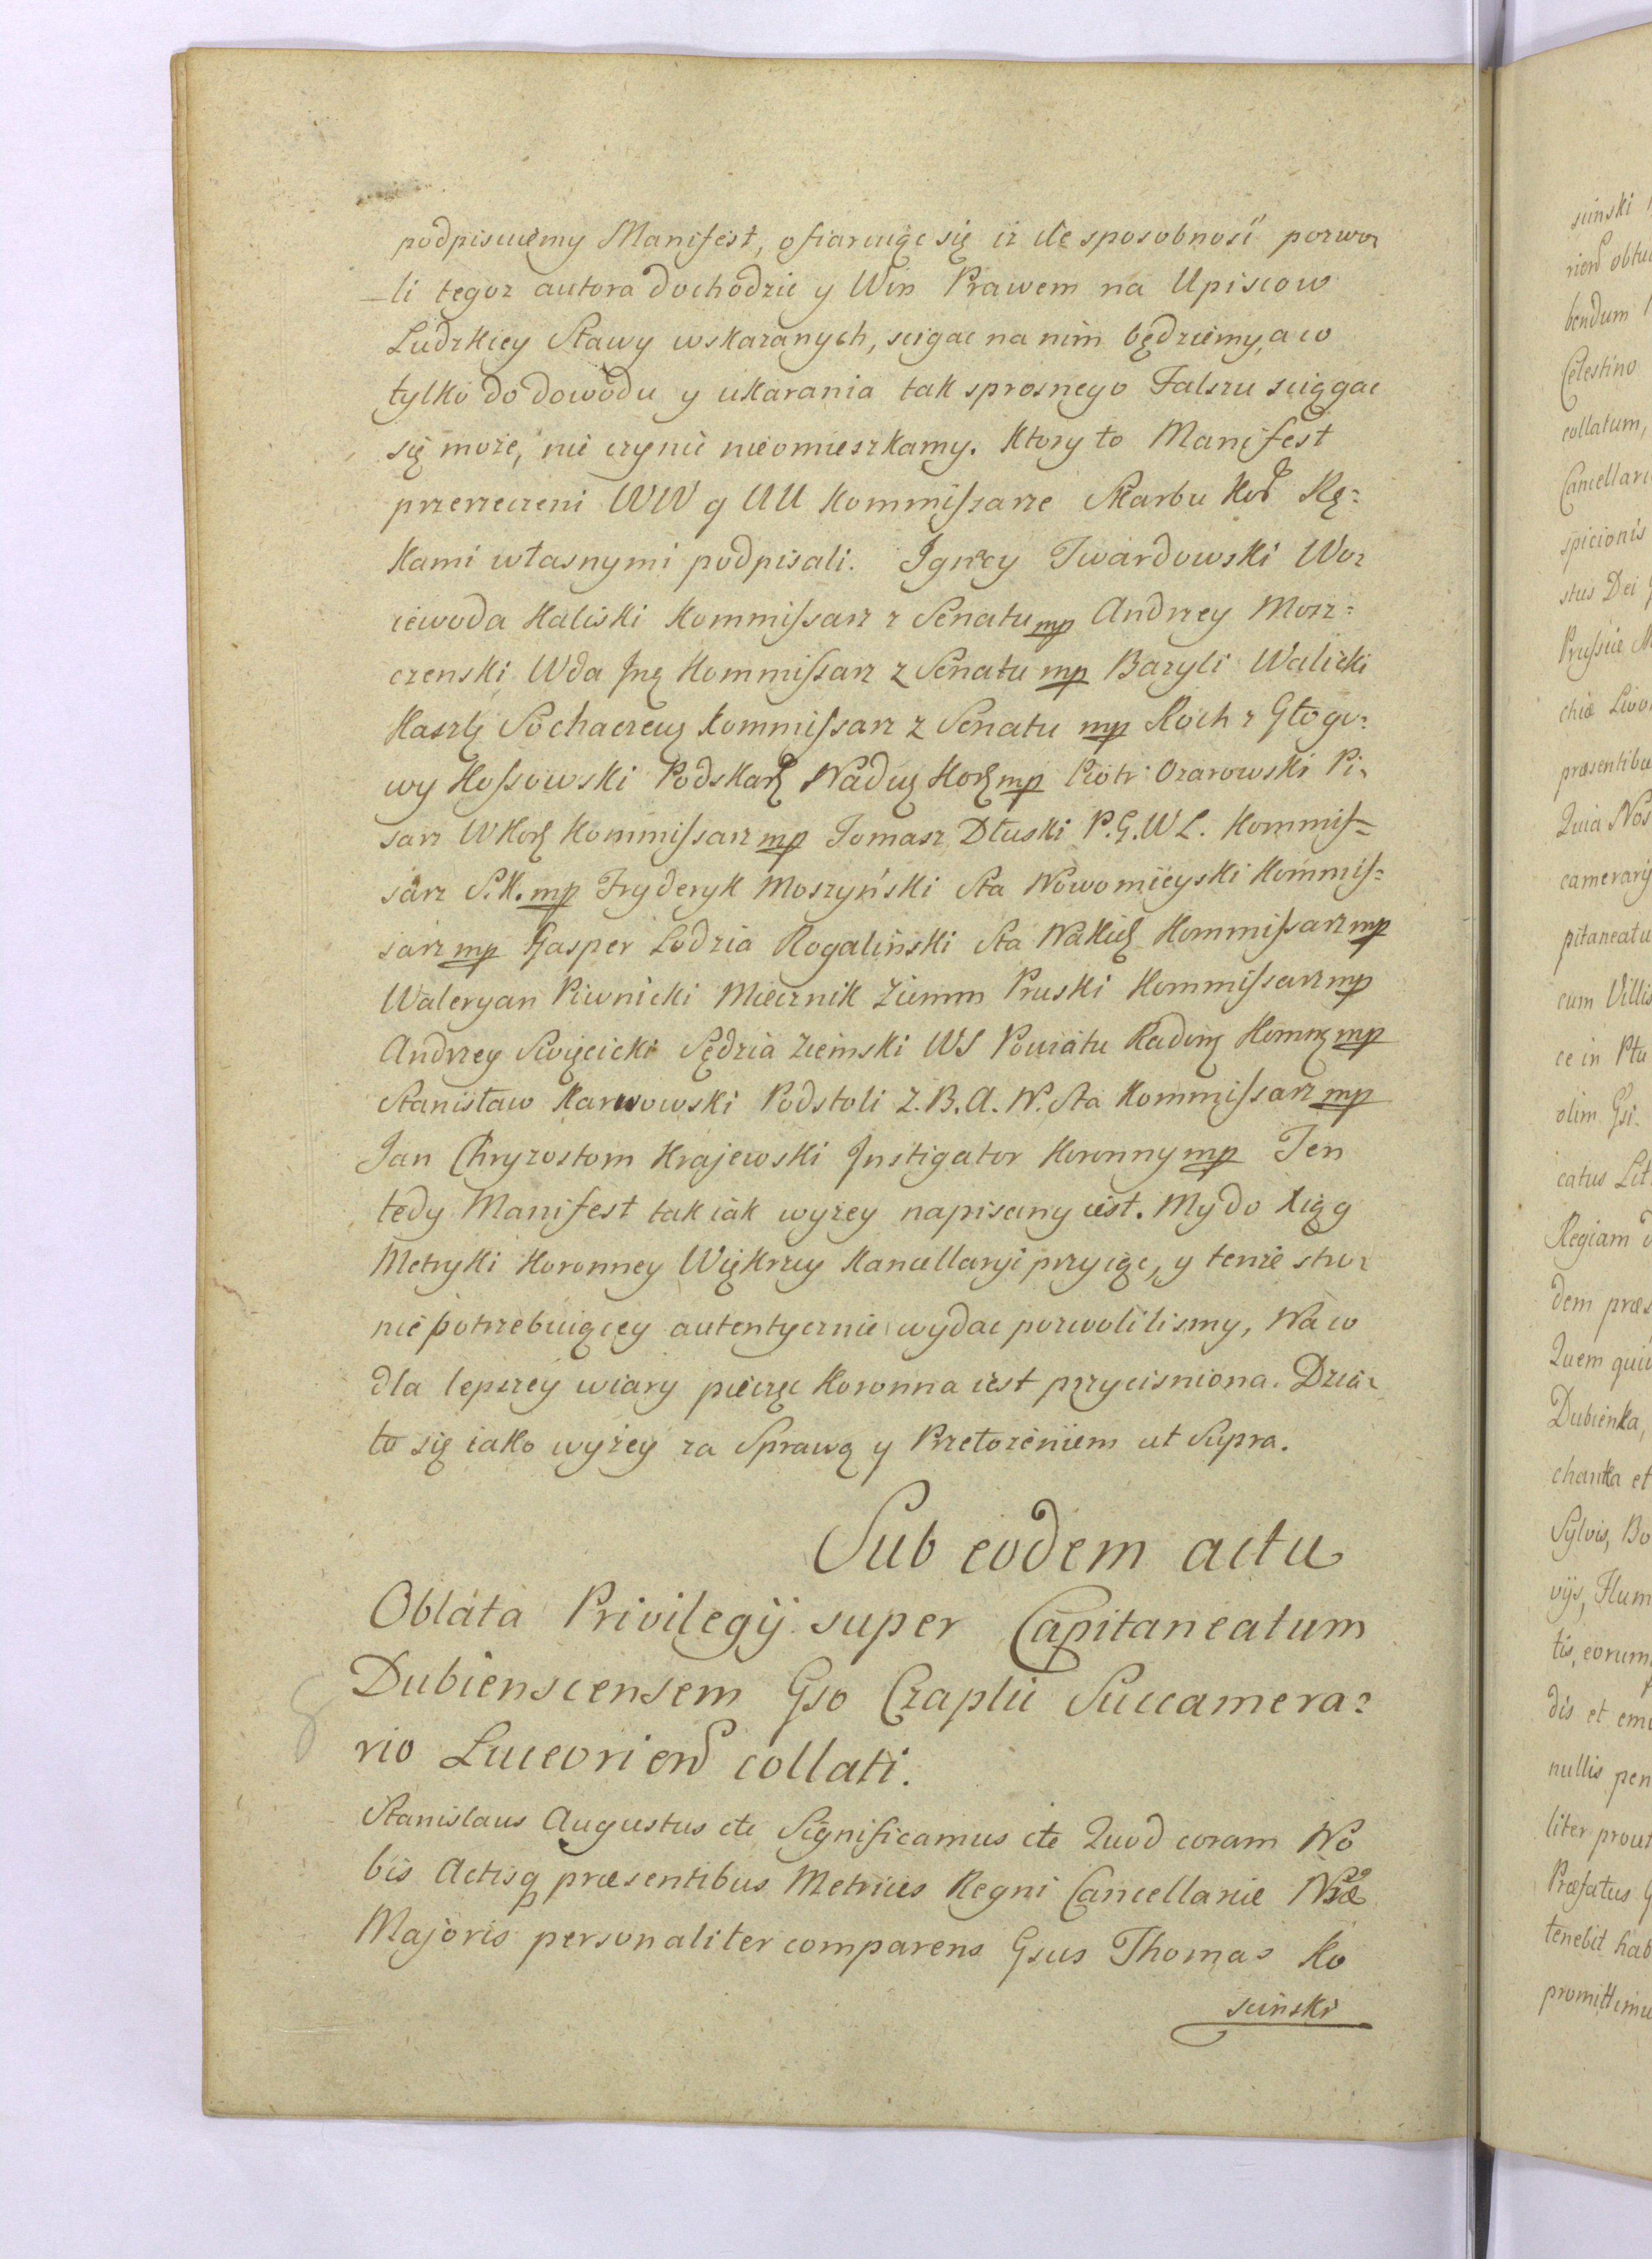 podpisuiemy Manifest, ofiaruiąc się iż ile sposobność pozwo-
-li tegoż autora dochodzić y Win Prawem na Upiscow
Ludzkiey Sławy wskazanych, scigac na nim będziemy, a co
tylko do dowodu y ukarania tak sprosnego Falszu sciągac
się może, nie czynić nieomieszkamy. Ktory to Manifest
przerzeczeni WW y UU Kommissarze Skarbu Kor Rę=
kami własnymi podpisali. Ignacy Twardowski Wo-
iewoda Kaliski Kommissarz z Senatu mp Andrzey Mosz=
czenski Wda Inę Kommissarz z Senatu mp Bazyli Walicki
Kasztę Sochaczew Kommissarz z Senatu mp Roch z Głogo=
wy Kossowski Podskarb Nadw Kor mp Piotr Ozarowski Pi-
sarz WKor Kommissarz mp Tomasz Dłuski P.G.W L. Kommis=
sarz S.K. mp Fryderyk Moszyński Sta Nowomieyski Kommis=
sarz mp Gasper Lodzia Rogaliński Sta Nakiel Kommissarz mp
Waleryan Piwnicki Miecznik Ziemm Pruski Kommissarz mp
Andrzey Swięcicki Sędzia Ziemski WS Powiatu Radom Komm mp
Stanisław Karwowski Podstoli Z. B. A. N. Sta Kommissarz mp
Jan Chryzostom Krajewski Instigator Koronny mp Ten
tedy Manifest tak iak wyżey napisany iest. My do Xiąg
Metryki Koronney Więkrzey Kancellaryi przyiąc, y tenże stro-
nie potrzebuiącey autentycznie wydac pozwolilismy, Na co
dla lepszey wiary pieczęc Koronna iest przycisniona. Dzia-
ło się iako wyżey za Sprawą y Przełożeniem ut Supra.
Sub eodem actu
Oblata Privilegij super Capitaneatum
Dubienscensem Gso Czaplic Succamera=
rio Luceorien collati.
Stanislaus Augustus etc Significamus etc Quod coram No
bis Actisq præsentibus Metrices Regni Cancellariæ Nræ
Majoris personaliter comparens Gsus Thomas Ko
scinski
scinski
rien obtu
bendum
Celestino
collatum,
Cancellari
spicionis
stus Dei
Prussiæ, M
chiæ Livo
præsentibu
Quia Nos
camerarij
pitaneatu
cum Villis
ce in Ptu
olim Gsi.
catus Lit
Regiam
dem præs
Quem qui
Dubienka,
chanka et
Sylvis, Bo
vijs, Flum
tis, eorum
dis et em
nullis pen
liter prout
Præfatus G
tenebit hab
promittimu